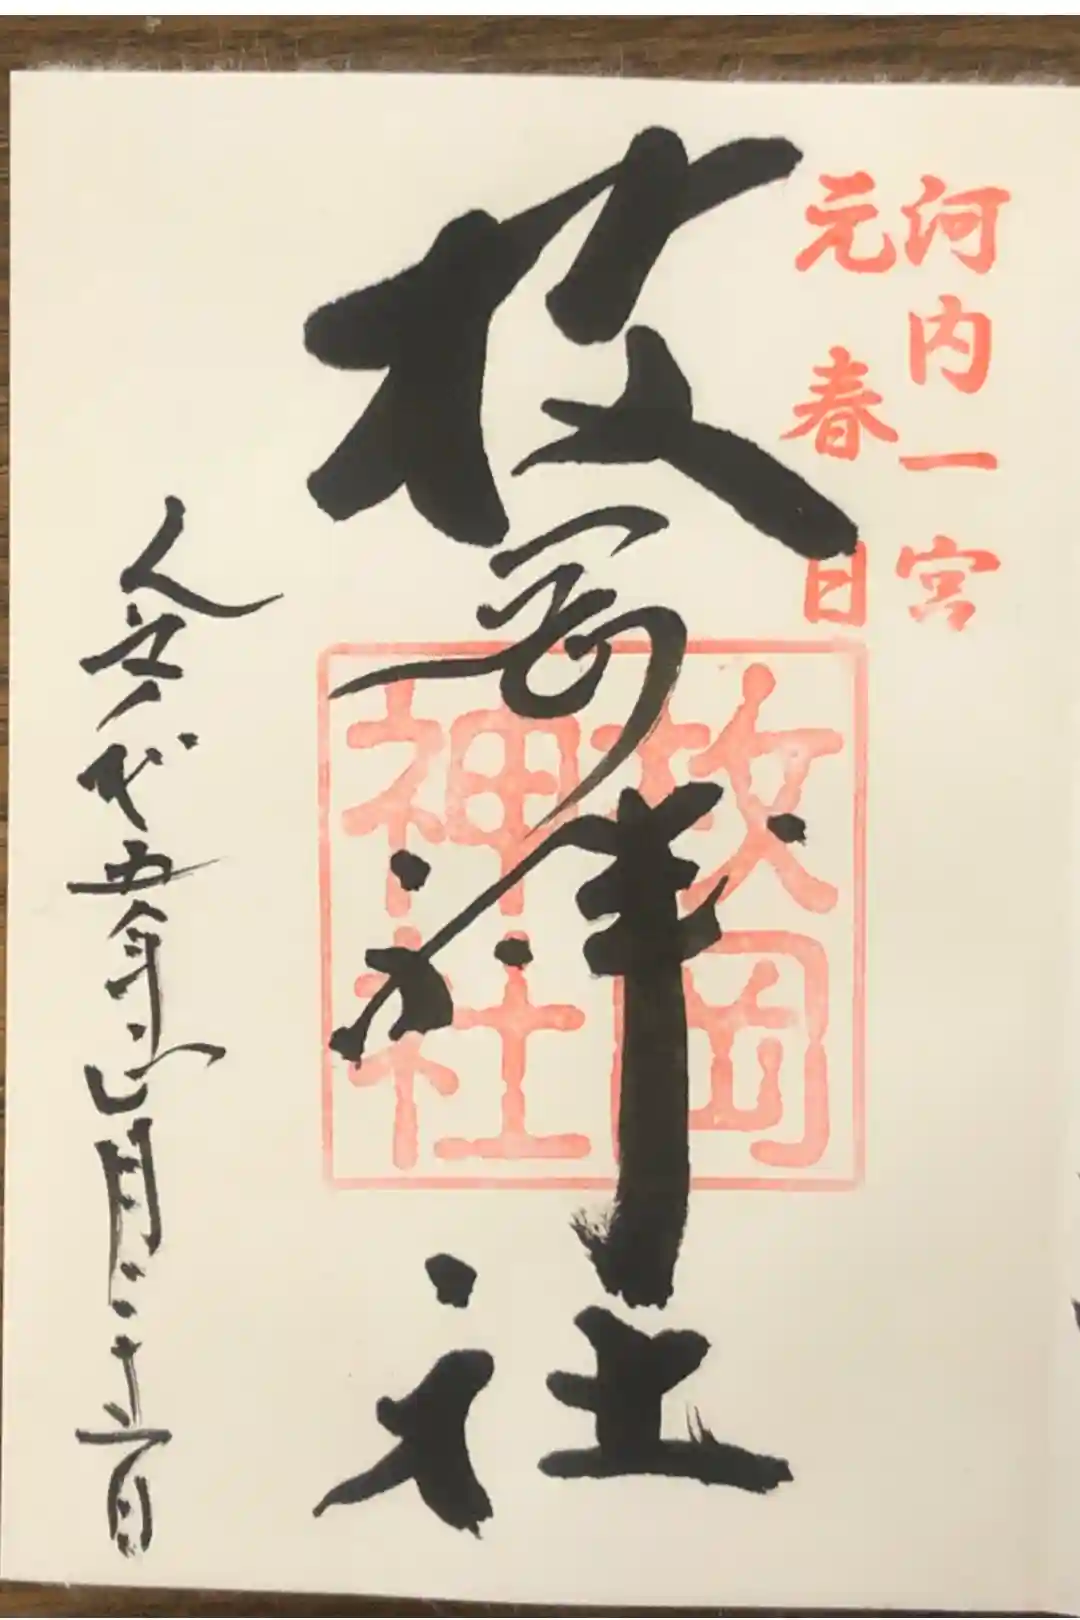 河内一宮
元春日
枚岡神社
枚岡
神社
令和五年 月二十 日